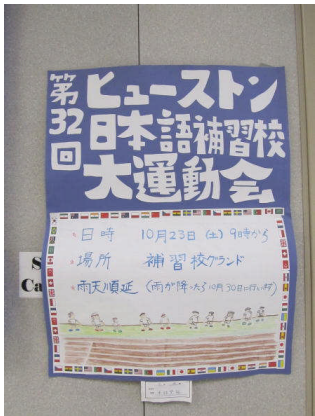 第32回
ヒューストン
日本語補習校
大運動会
日時 10月23日(土) 9時から
場所 補習校グランド
雨天順延 (雨が降ったら10月30日に行います)
S
Ca